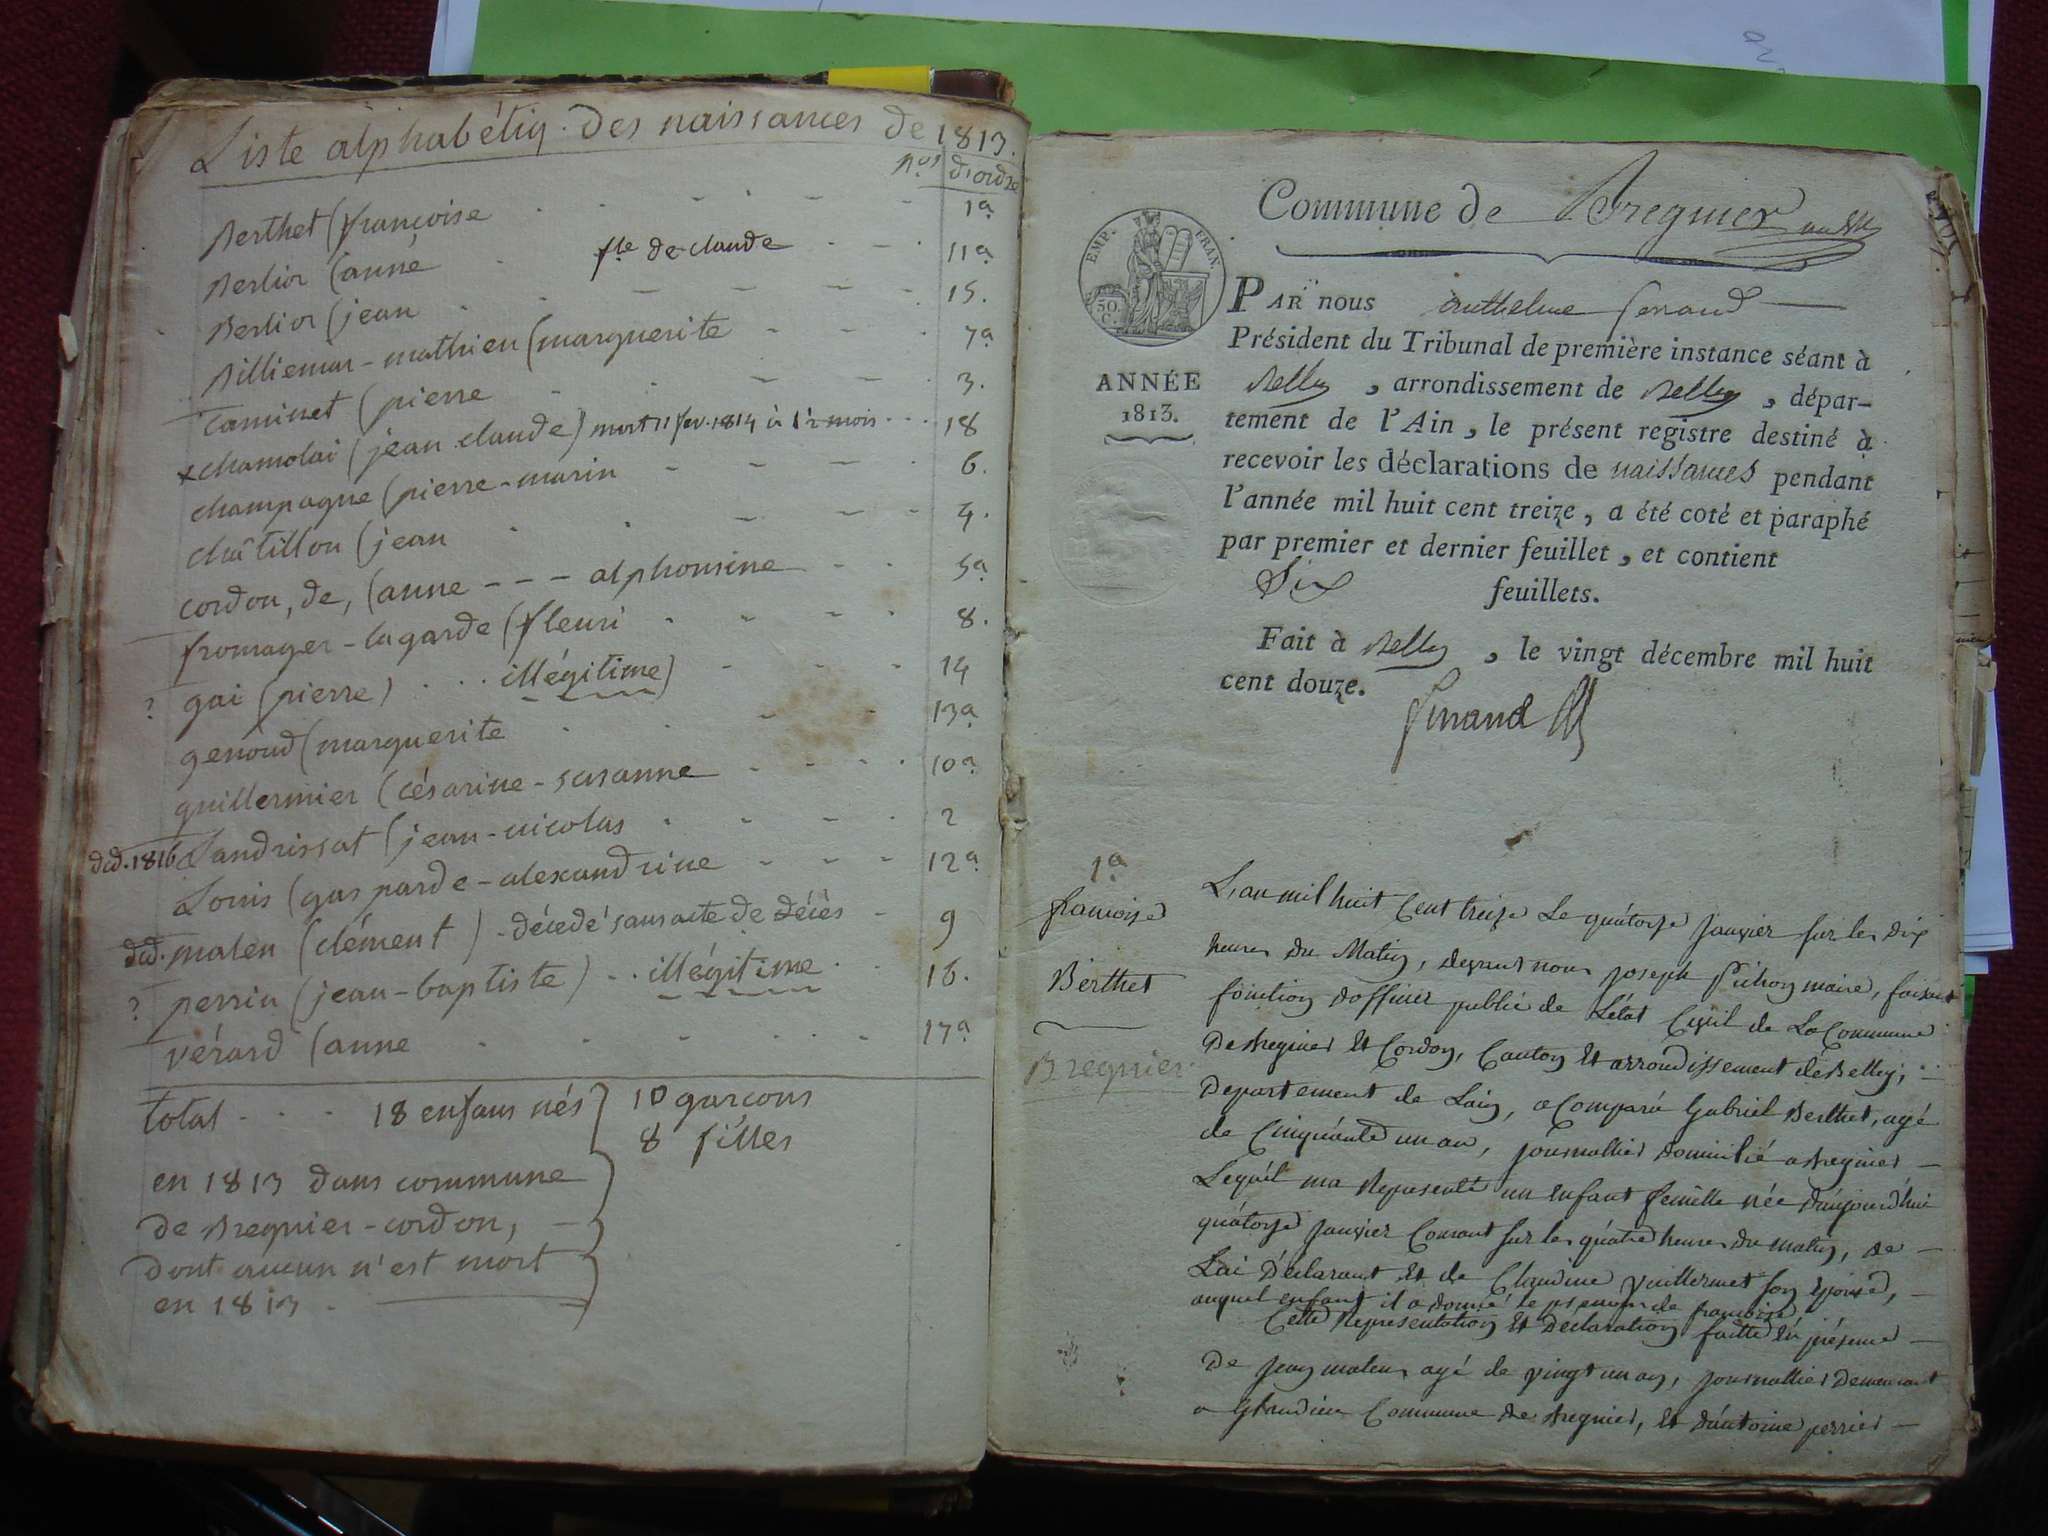 Liste alphabétiq. des naissances de 1813.
nos d'ordre
Berthet (françoise - - - - 1a
Berlior (anne fle de claude - - 11a
Berlior (jean - - - - 15.
Billiemar-mathieu (marguerite - - 7a
Caminet (pierre - - - - 3.
x chamolai (jean claude) mort 11 fev. 1814 à 1 1/2 mois - - 18
champagne (pierre-marin - - - 6.
châtillon (jean - - - 4.
cordon, de, (anne - - - alphonsine - - 5a
fromager-lagarde (fleuri - - - 8.
? gai (pierre) . . . illégitime) - - - 14
genoud (marguerite - - - 13a
guillermier (césarine-susanne - - - 10a
dcd. 1816 Landrissat (jean-nicolas - - - 2
Louis (gasparde-alexandrine - - - 12a
dcd. maleu (clément) - décédé sans acte de décès - 9
? perrin (jean-baptiste) - - illégitime - - 16.
vérard (anne - - - - 17a
total - - - 18 enfans nés 10 garçons
8 filles
en 1813 dans commune
de Bregnier-cordon,
dont aucun n'est mort
en 1813 -
Commune de Bregnier
EMP. FRAN.
50 C.
PAR nous Anthelme Ferrand
Président du Tribunal de première instance séant à
Belley, arrondissement de Belley, dépar-
tement de l'Ain, le présent registre destiné à
recevoir les déclarations de naissances pendant
l'année mil huit cent treize, a été coté et paraphé
par premier et dernier feuillet, et contient
Six feuillets.
Fait à Belley, le vingt décembre mil huit
cent douze.
ANNÉE
1813.
1a
françoise
Berthet
Bregnier.
L'an mil huit Cent treize Le quatorze Janvier sur les dix
heures du Matin, devant nous Joseph Pichon maire, faisant
fonction d'officier public de L'état Civil de La Commune
De Bregnier Et Cordon, Canton Et arrondissement de Belley,
Departement de Lain, a Comparu Gabriel Berthet, agé
de Cinquante un an, journallier domicilié a Bregnier -
Lequel ma Representé un Enfant femelle née d'aujourd'hui
quatorze janvier Courant sur les quatre heures du matin, de -
Lui Déclarant Et de Claudine Vuillermet son Epouse, -
auquel enfant il a donné le prenom de françoise
Cette Representation Et Declaration faitte En présence -
De Jean maleu agé de vingt un an, journallier Demeurant
a Glandieu Commune de Bregnier, Et d'antoine perrier -